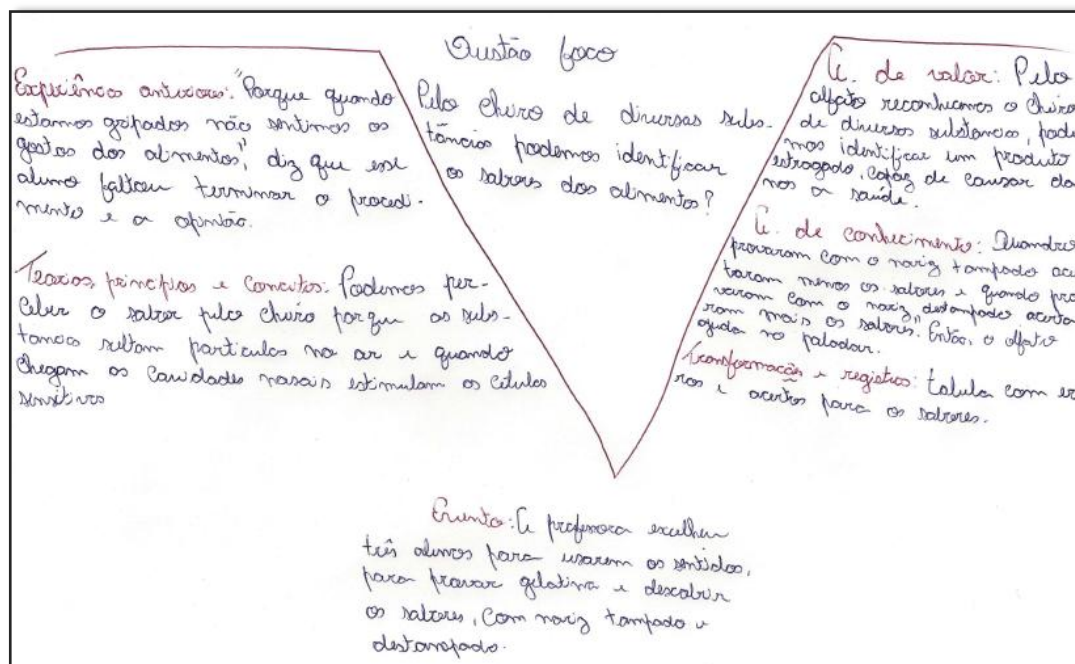 Questão foco
Pelo cheiro de diversas subs-
tâncias podemos identificar
os sabores dos alimentos?
Experiências anteriores: "Porque quando
estamos gripados não sentimos os
gostos dos alimentos", diz que esse
aluno faltou terminar o procedi-
mento e a opinião.
Teorias, princípios e conceitos: Podemos per-
ceber o sabor pelo cheiro porque as subs-
tancias soltam partículas no ar e quando
chegam as cavidades nasais estimulam as células
sensitivas
A. de valor: Pelo
olfato reconhecemos o cheiro
de diversas substancias, pode
mos identificar um produto
estragado, capaz de causar da
nos a saúde.
A. de conhecimento: Quando
provaram com o nariz tampado acer
taram menos os sabores e quando pro
varam com o nariz destampado acerta
ram mais os sabores. Então, o olfato
ajuda no paladar.
Transformações e registros: tabela com er
ros e acertos para os sabores.
Evento: A professora escolheu
três alunos para usarem os sentidos,
para provar gelatina e descobrir
os sabores, com nariz tampado e
destampado.